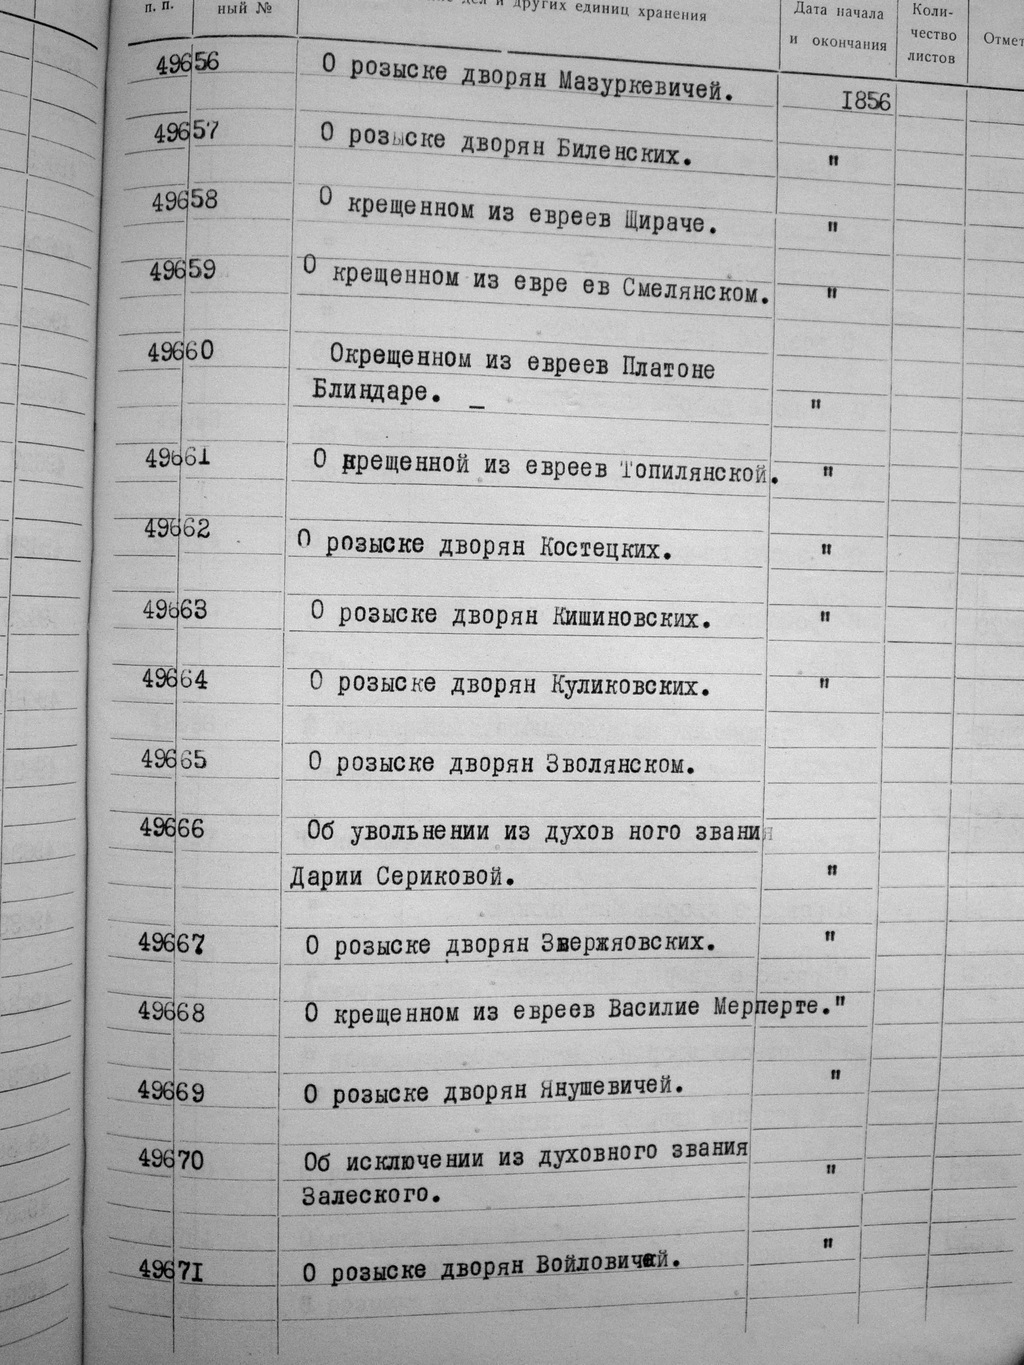 п. п. ный № дел и других единиц хранения Дата начала и окончания Коли- чество листов Отмет
49656 О розыске дворян Мазуркевичей. 1856
49657 О розыске дворян Биленских. "
49658 О крещенном из евреев Щираче. "
49659 О крещенном из евре ев Смелянском. "
49660 Окрещенном из евреев Платоне
Блиндаре. _ "
49661 О крещенной из евреев Топилянской. "
49662 О розыске дворян Костецких. "
49663 О розыске дворян Кишиновских. "
49664 О розыске дворян Куликовских. "
49665 О розыске дворян Зволянском.
49666 Об увольнении из духов ного звания
Дарии Сериковой. "
49667 О розыске дворян Звержяовских. "
49668 О крещенном из евреев Василие Мерперте. "
49669 О розыске дворян Янушевичей. "
49670 Об исключении из духовного звания
Залеского. "
49671 О розыске дворян Войловичей. "